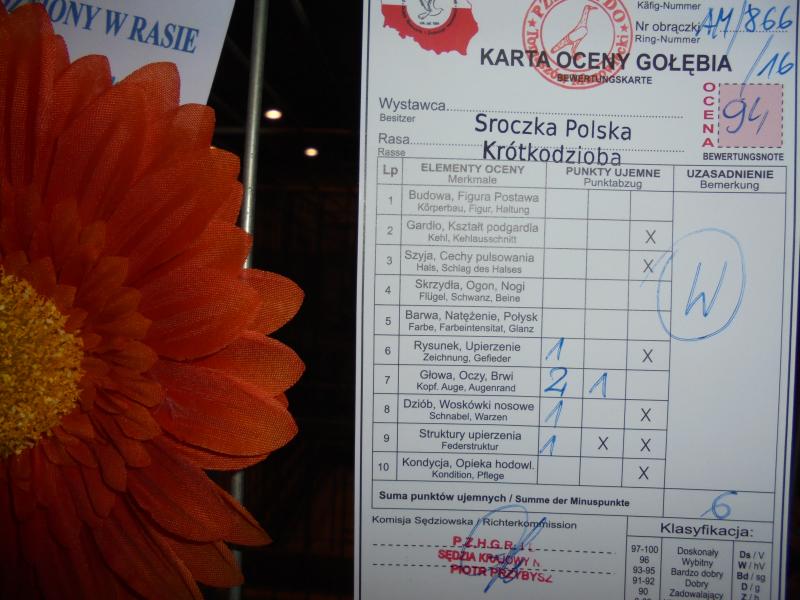 ONY W RASIE
Käfig-Nummer
Nr obrączki AM/866
Ring-Nummer
/16
KARTA OCENY GOŁĘBIA
BEWERTUNGSKARTE
OCENA
94
BEWERTUNGSNOTE
Wystawca
Besitzer
Sroczka Polska
Rasa
Rasse
Krótkodzioba
Lp ELEMENTY OCENY PUNKTY UJEMNE UZASADNIENIE
Merkmale Punktabzug Bemerkung
1 Budowa, Figura Postawa
Körperbau, Figur, Haltung
2 Gardło, Kształt podgardla X
Kehl, Kehlausschnitt
3 Szyja, Cechy pulsowania X
Hals, Schlag des Halses
W
4 Skrzydła, Ogon, Nogi
Flügel, Schwanz, Beine
5 Barwa, Natężenie, Połysk
Farbe, Farbeintensitat, Glanz
6 Rysunek, Upierzenie 1 X
Zeichnung, Gefieder
7 Głowa, Oczy, Brwi 2 1
Kopf. Auge, Augenrand
8 Dziób, Woskówki nosowe 1 X
Schnabel, Warzen
9 Struktury upierzenia 1 X X
Federstruktur
10 Kondycja, Opieka hodowl. X
Kondition, Pflege
Suma punktów ujemnych / Summe der Minuspunkte 6
Komisja Sędziowska / Richterkommission
Klasyfikacja:
P.Z.H.G.R.
SĘDZIA KRAJOWY
PIOTR PRZYBYSZ
97-100 Doskonały Ds / V
96 Wybitny W / hV
93-95 Bardzo dobry Bd / sg
91-92 Dobry D / g
90 Zadowalający Z / b